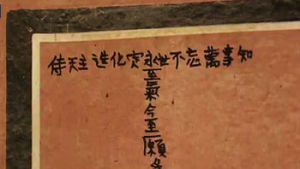 侍天主造化定永世不忘萬事知
至氣今至願